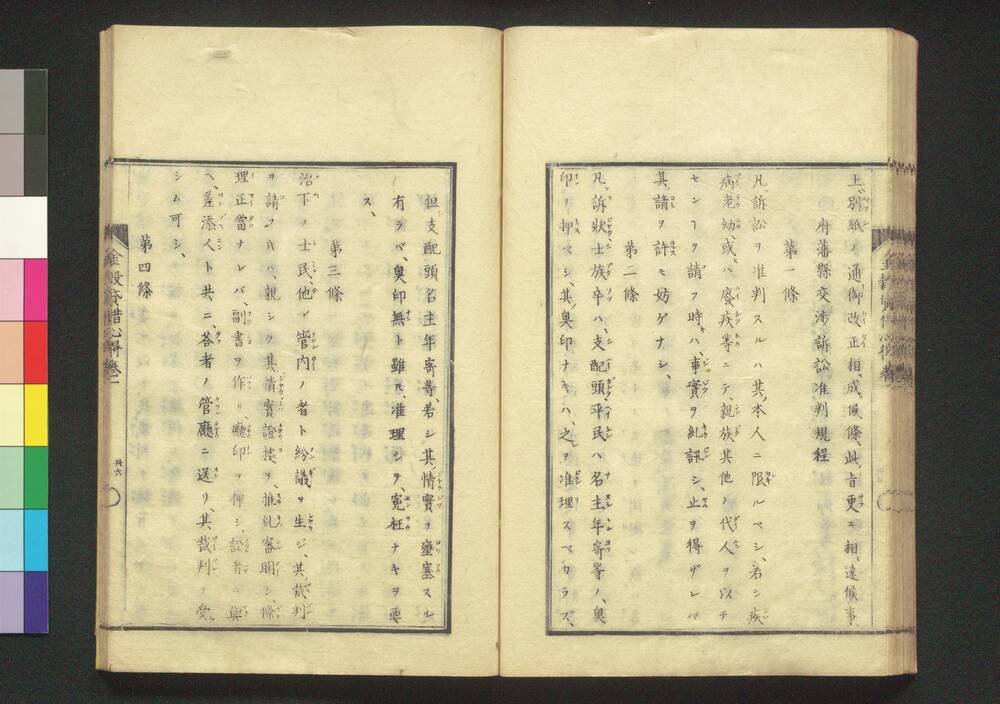 上、別紙ノ通御改正相成候條、此旨更ニ相達候事、
府藩縣交渉訴訟准判規程
第一條
凡訴訟ヲ准判スルハ其本人ニ限ルベシ、若シ疾
病老幼、或ハ癈疾等ニテ、親族其他ノ代人ヲ以テ
センヿヲ請フ時ハ、事實ヲ糺訊シ、止ヲ得ザレバ
其請ヲ許スモ妨ゲナシ、
第二條
凡訴狀士族卒ハ、支配頭平民ハ名主年寄等ノ、奥
印ヲ押スベシ、其奥印ナキハ、之ヲ准理スベカラズ、
但支配頭名主年寄等、若シ其情實ヲ壅塞スル
有ラバ、奥印無ト雖𪜈、准理シテ、寃枉ナキヲ要
ス、
第三條
治下ノ士民、他ノ管内ノ者ト紛議ヲ生ジ、其裁判
ヲ請フ𪜈ハ、親シク其情實證據ヲ、推糺審明シ、條
理正當ナレバ、副書ヲ作リ、廳印ヲ押シ、訟者ニ與
ヘ、差添人ト共ニ、答者ノ管廳ニ送リ、其裁判ヲ受
シム可シ、
第四條
金穀貸借心得卷一
卅六